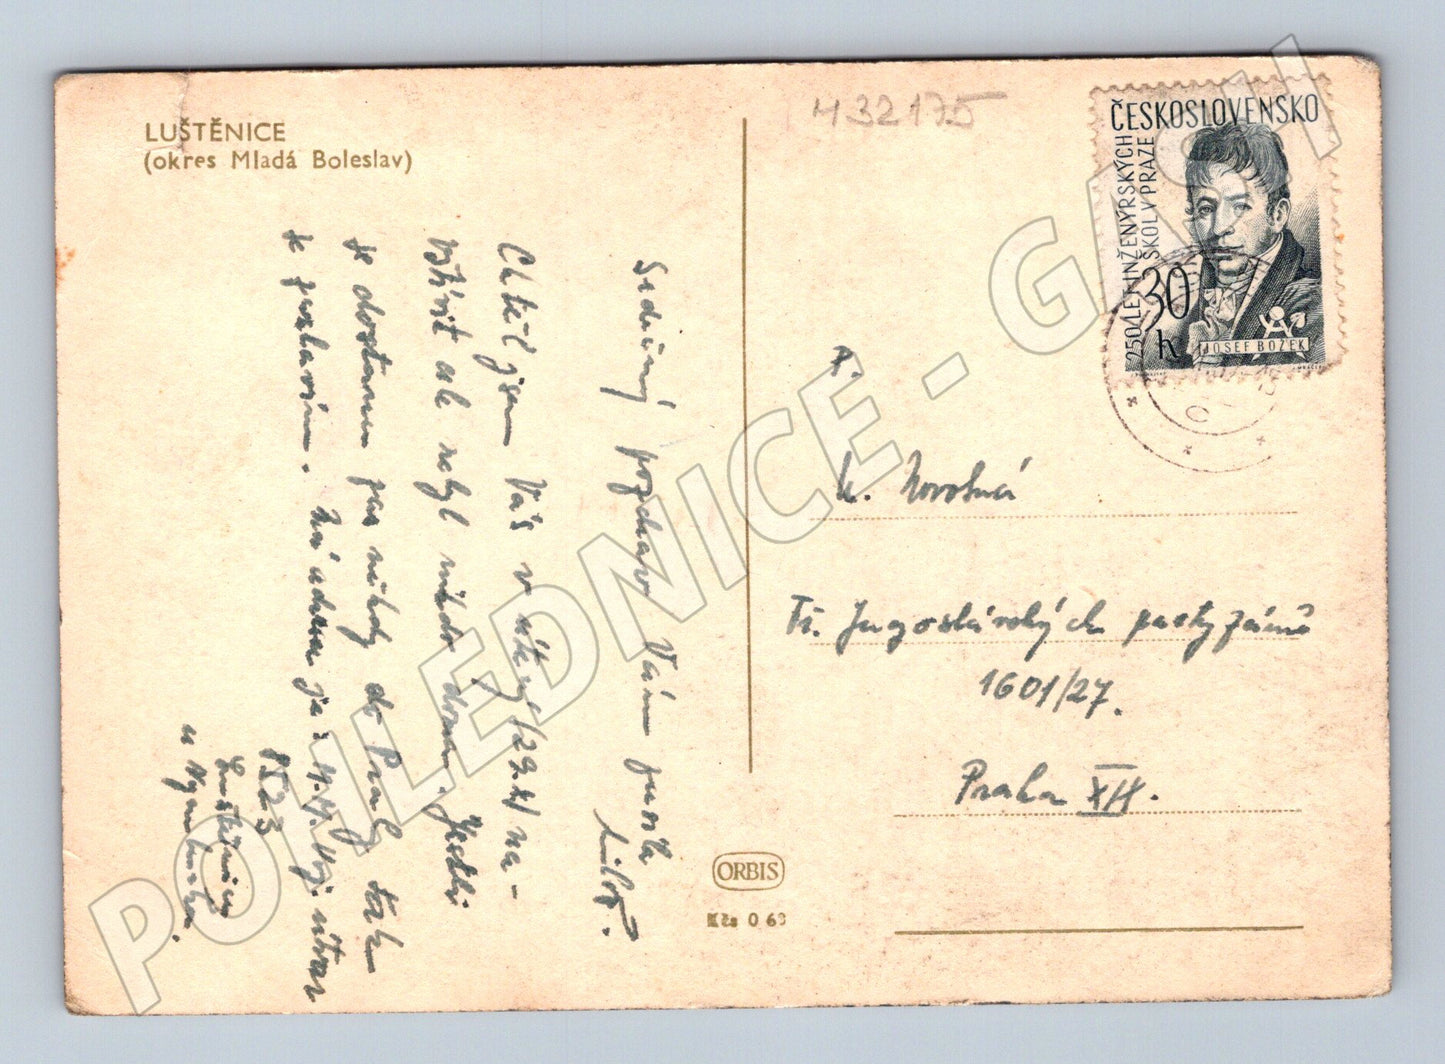 LUŠTĚNICE
(okres Mladá Boleslav)
432175
ČESKOSLOVENSKO
250 LET INŽENÝRSKÝCH
ŠKOL V PRAZE
30
h
JOSEF BOŽEK
Srdečný pozdrav Vám
Chtěl jsem Vás v úterý /29.XI na-
vštívit ale nebyl nikdo doma. Jestli
se dostanu zas někdy do Prahy tak
se zastavím. Má adresa je:
1523
Luštěnice
P.
Novotná
Tř. Jugoslávských partyzánů
1601/27.
Praha XII.
ORBIS
Kčs 0 60
POHLEDNICE - GASH